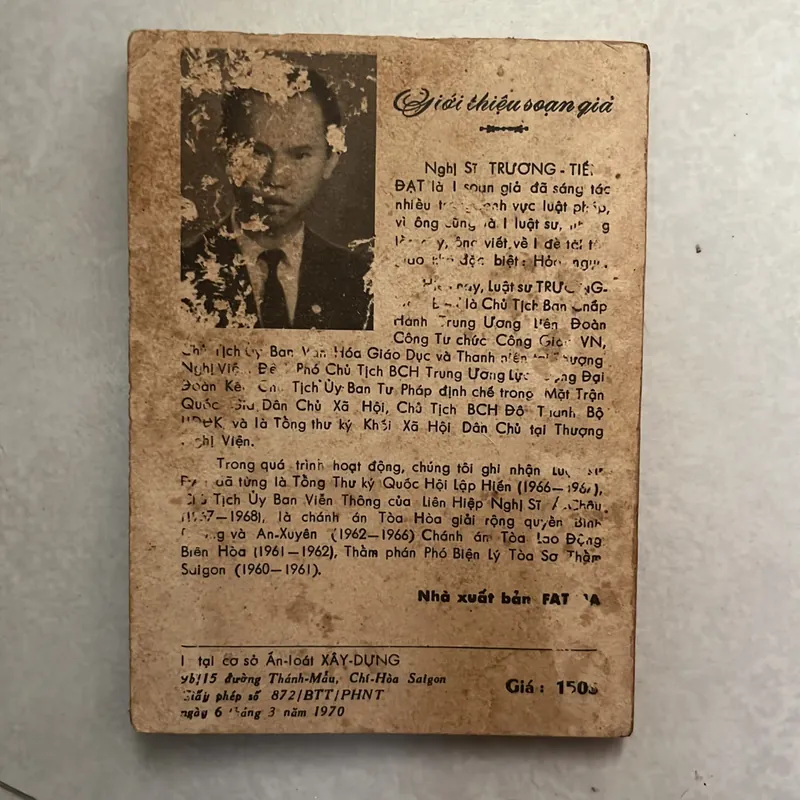 Giới thiệu soạn giả
Nghị Sĩ TRƯƠNG - TIẾ
ĐẠT là 1 soạn giả đã sáng tác
nhiều vực luật pháp,
vì ông cũng là 1 luật sư,
ông viết về 1 đề tài
đặc biệt: Hỏa ngục.
Luật sư TRƯƠNG-
là Chủ Tịch Ban Chấp
Hành Trung Ương Liên Đoàn
Công Tư chức Công Giáo VN,
Chủ Tịch Ủy Ban Văn Hóa Giáo Dục và Thanh niên tại Thượng
Nghị Viện, Đệ Phó Chủ Tịch BCH Trung Ương Lực Đại
Đoàn Kết, Chủ Tịch Ủy Ban Tư Pháp định chế trong Mặt Trận
Quốc Gia Dân Chủ Xã Hội, Chủ Tịch BCH Đô Thành Bộ
và là Tổng thư ký Khối Xã Hội Dân Chủ tại Thượng
Nghị Viện.
Trong quá trình hoạt động, chúng tôi ghi nhận
đã từng là Tổng Thư ký Quốc Hội Lập Hiến (1966—1967),
Chủ Tịch Ủy Ban Viễn Thông của Liên Hiệp Nghị Sĩ Á-Châu
(1967—1968), là chánh án Tòa Hòa giải rộng quyền Bình
và An-Xuyên (1962—1966) Chánh án Tòa Lao Động
Biên Hòa (1961—1962), Thẩm phán Phó Biện Lý Tòa Sơ Thẩm
Saigon (1960—1961).
Nhà xuất bản
tại cơ sở Ấn-loát XÂY-DỰNG
đường Thánh-Mẫu, Chí-Hòa Saigon
Giấy phép số 872/BTT/PHNT
ngày 6 tháng 3 năm 1970
Giá : 150$